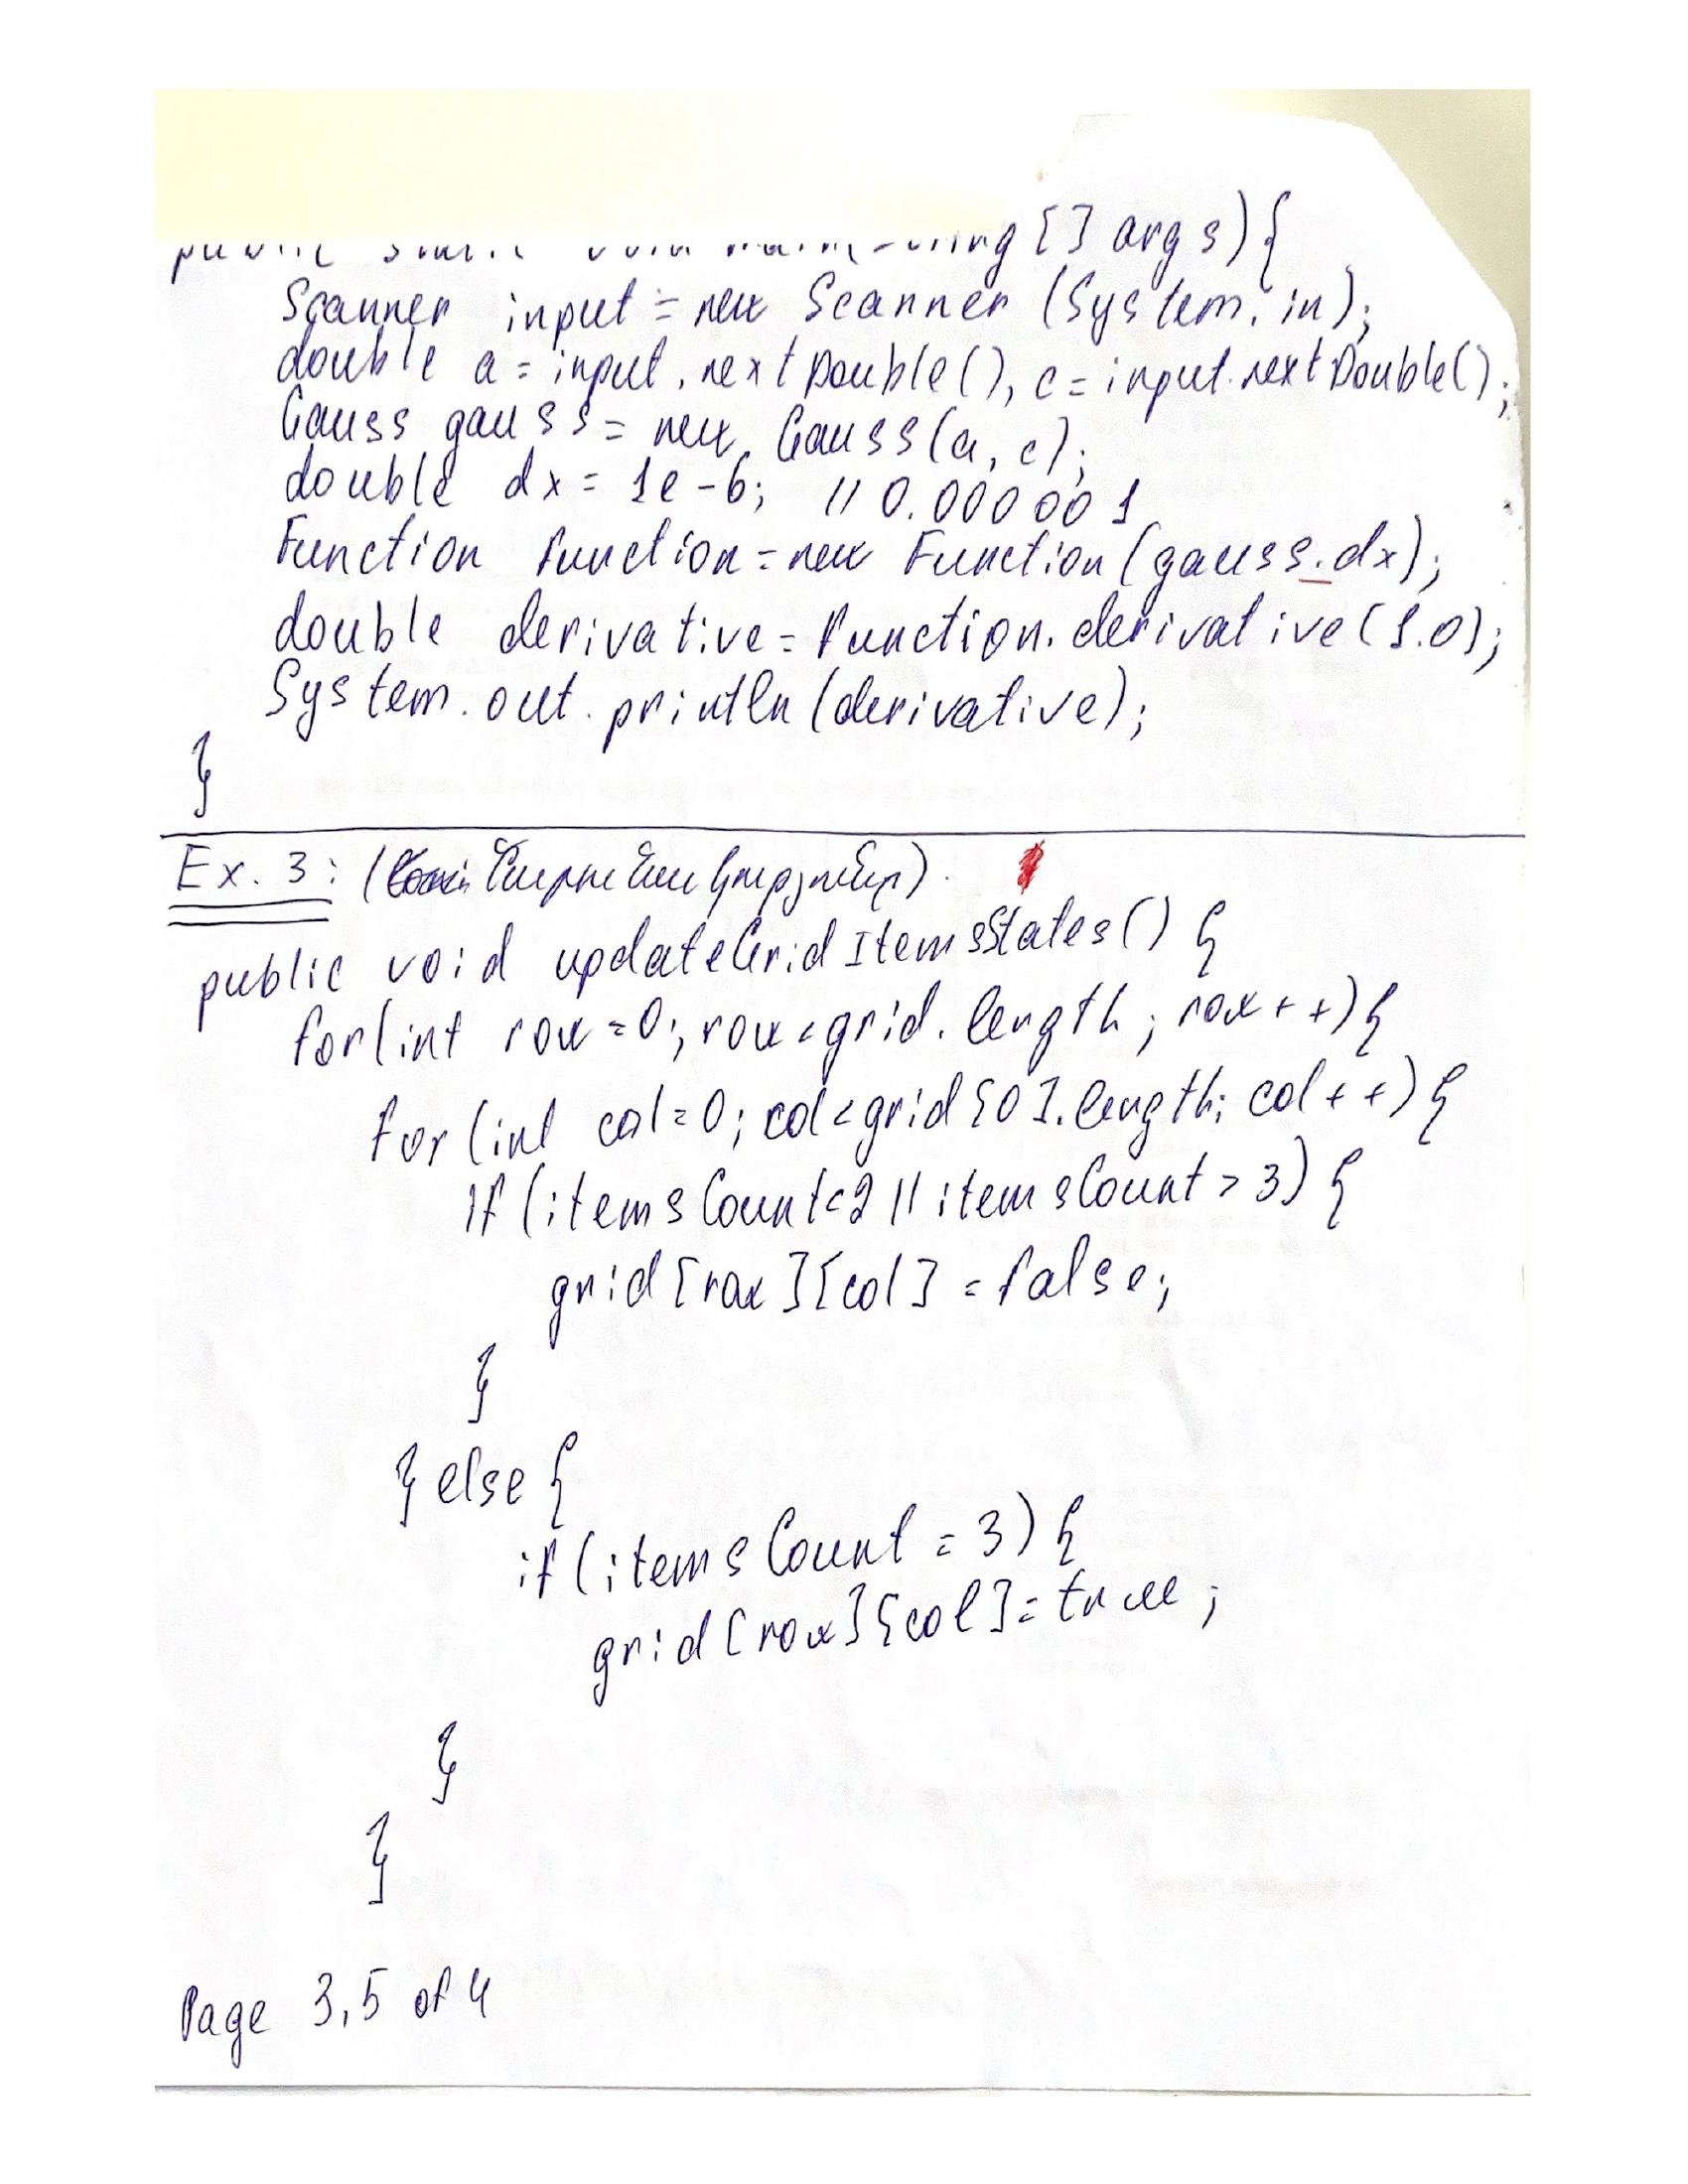 public static void main(String [] args){
Scanner input = new Scanner (System.in);
double a = input.nextDouble(), c = input.nextDouble();
Gauss gauss = new Gauss(a, c);
double dx = 1e-6; // 0.000001
Function function = new Function (gauss.dx);
double derivative = function.derivative(1.0);
System.out.println(derivative);
}
Ex. 3: (
public void updateGridItemsStates() {
for(int row=0; row<grid.length; row++){
for (int col=0; col<grid[0].length; col++){
if (itemsCount<2 || itemsCount > 3) {
grid[row][col] = false;
}
} else {
if (itemsCount = 3) {
grid[row][col] = true;
}
}
Page 3,5 of 4